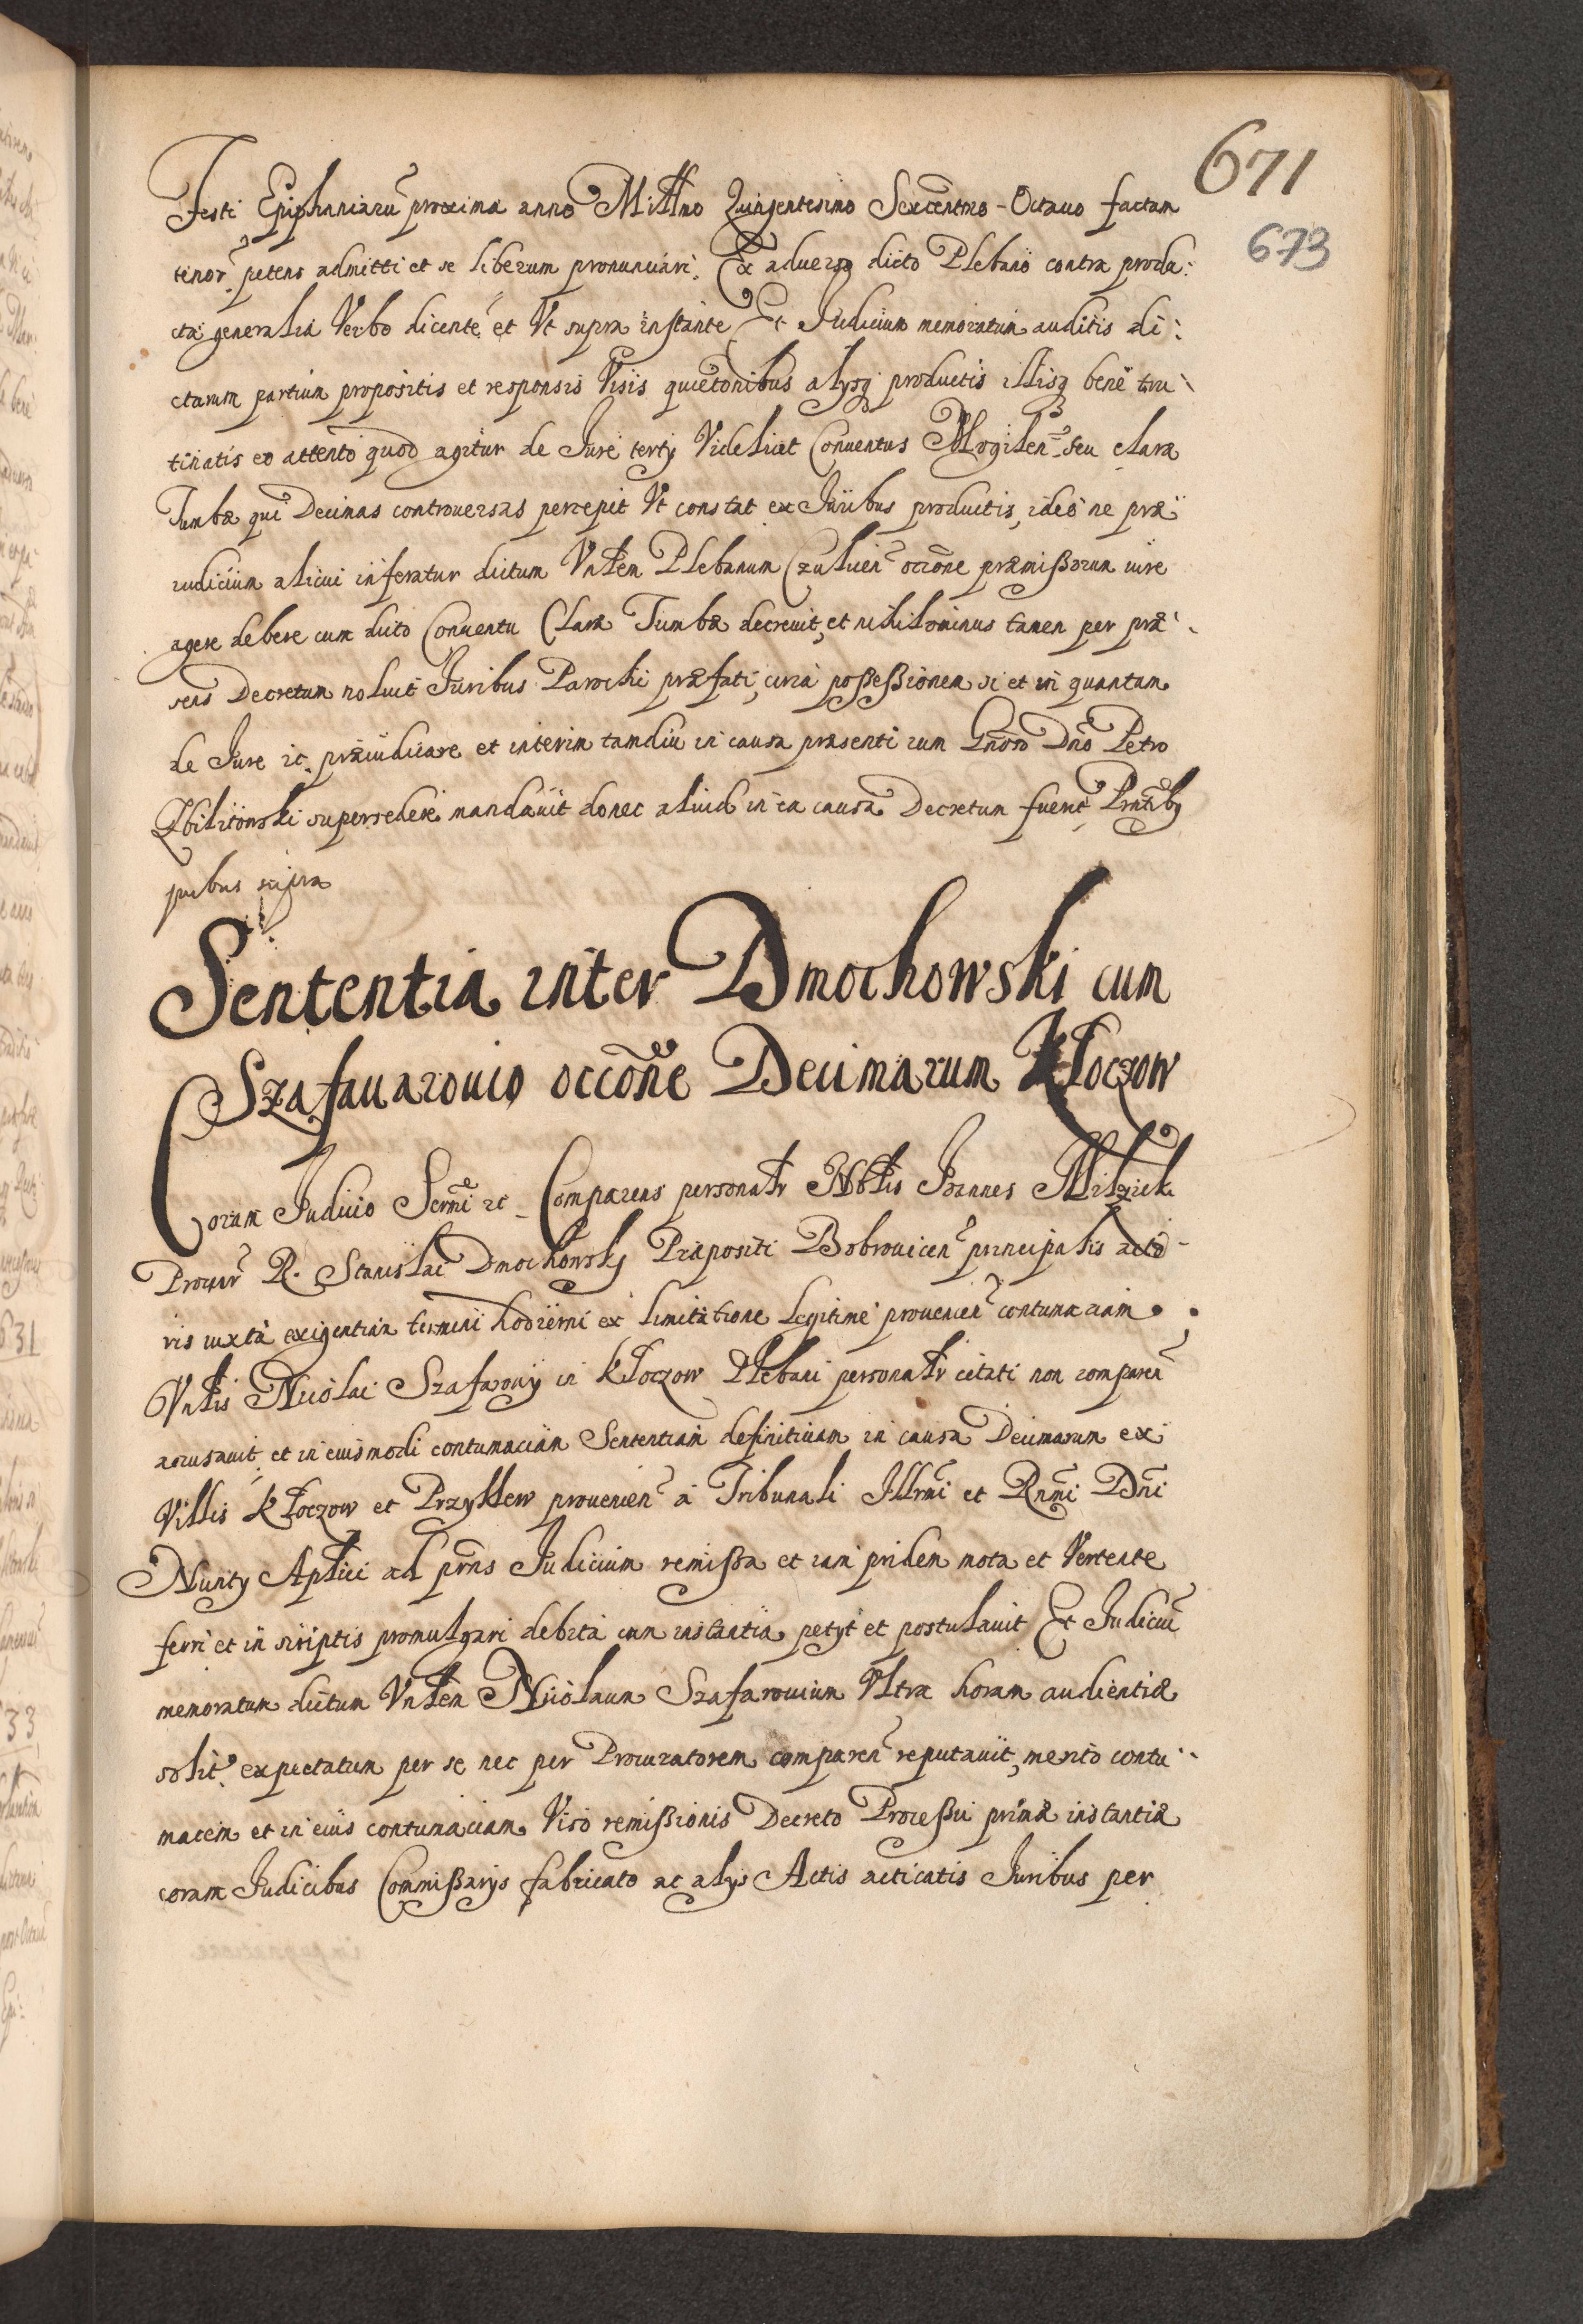 671
673
Festi Epiphaniarũ proxima anno Millmo Quingentesimo Sexcentmo-Octauo factam
tenor̃ petens admitti et se liberum pronunciari. Ex aduerso dicto Plebano contra produ:
cta generalia Verbo dicente et Vt supra instante Et Judicium memoratum auditis di:
ctarum partium propositis et responsis Visis quietonibus alysq́ productis illisq́ bene tru:
tinatis eo attento quod agitur de Jure tertij Videlicet Conuentus Mogilen̄ seu clara
Tumbæ qui Decimas controuersas percepit Vt constat ex Juribus productis, ideo ne præ
iudicium alicui inferatur dictum Vnłem Plebanum Czuluien̄ occōne præmißorum iure
agere debere cum dicto Conuentu Claræ Tumbæ decreuit, et nihilominus tamen per præ
sens Decretum noluit Juribus Parochi præfati, circa poßeßionem si et in quantum
de Jure ic. præiudicare et interim tamdiu in causa præsenti cum Gnōso Dnō Petro
Zbilitowski supersedere mandauit donec aliud in ea causa Decretum fuerit Pnt̃iby
quibus supra
Sententia inter Dmochowski cum
Szafauarouio occōne Decimarum Kłoczow
Coram Judicio Serm̃i ic Comparens personałr Nobłis Joannes Milzick
Procur̃ R. Stanislai Dmochowsky Præpositi Bobrouicen̄ principalis acto-
ris iuxta exigentiam termini hodierni ex limitatione legitime prouenien̄ contumaciam
Vnłis Nicolai Szafarouij in Kłoczow Plebani personałr citati non comparen̄
accusauit et in eiusmodi contumaciam Sententiam definitiuam in causa Decimarum ex
Villis Kłoczow et Przyłłew prouenien̄ à Tribunali Jllrm̃i et Rnm̃i Dn̄i
Nuntÿ Aplici ad prn̄s Judicium remißa et iam pridem mota et Vertente
ferri et in scriptis promulgari debita cum instantia petyt et postulauit Et Judiciũ
memoratum dictum Vnłem Nicolaum Szafarouium Vltra horam audientiæ
solit̃ expectatum per se nec per Procuratorem comparen̄ reputauit, merito contu-
macem et in eius contumaciam Viso remißionis Decreto Proceßu primæ instantiæ
coram Judicibus Commißarys fabricato ac alys Actis acticatis Juribus per